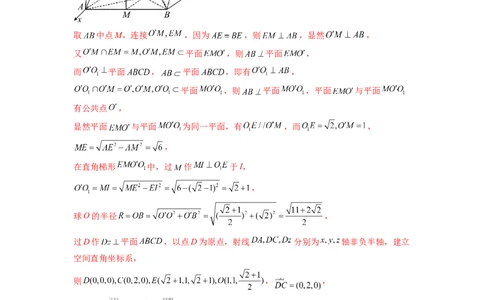 A
M
B
x
取AB中点M，连接O'M,EM，因为AE=BE，则EM⊥AB，显然O'M⊥AB，
又O'M∩EM=M,O'M,EM⊂平面EMO'，则AB⊥平面EMO'，
而O'O₁⊥平面ABCD，AB⊂平面ABCD，即有O'O₁⊥AB，
O'O₁∩O'M=O',O'M,O'O₁⊂平面MO'O₁，则AB⊥平面MO'O₁，平面EMO'与平面MO'O₁
有公共点O'，
显然平面EMO'与平面MO'O₁为同一平面，有O₁E//O'M，而O₁E=2,O'M=1，
ME=AE²−AM²=6，
在直角梯形EMO'O₁中，过M作MI⊥O₁E于I，
O'O₁=MI=ME²−EI²=6−(2−1)²=2+1，
球O的半径R=OB=O'O²+O'B²=(2+1/2)²+(2)²=11+2 2/2，
过D作Dz⊥平面ABCD，以点D为原点，射线DA,DC,Dz分别为x,y,z轴非负半轴，建立
空间直角坐标系，
则D(0,0,0),C(0,2,0),E(2+1,1,2+1),O(1,1,2+1/2)，DC=(0,2,0)，